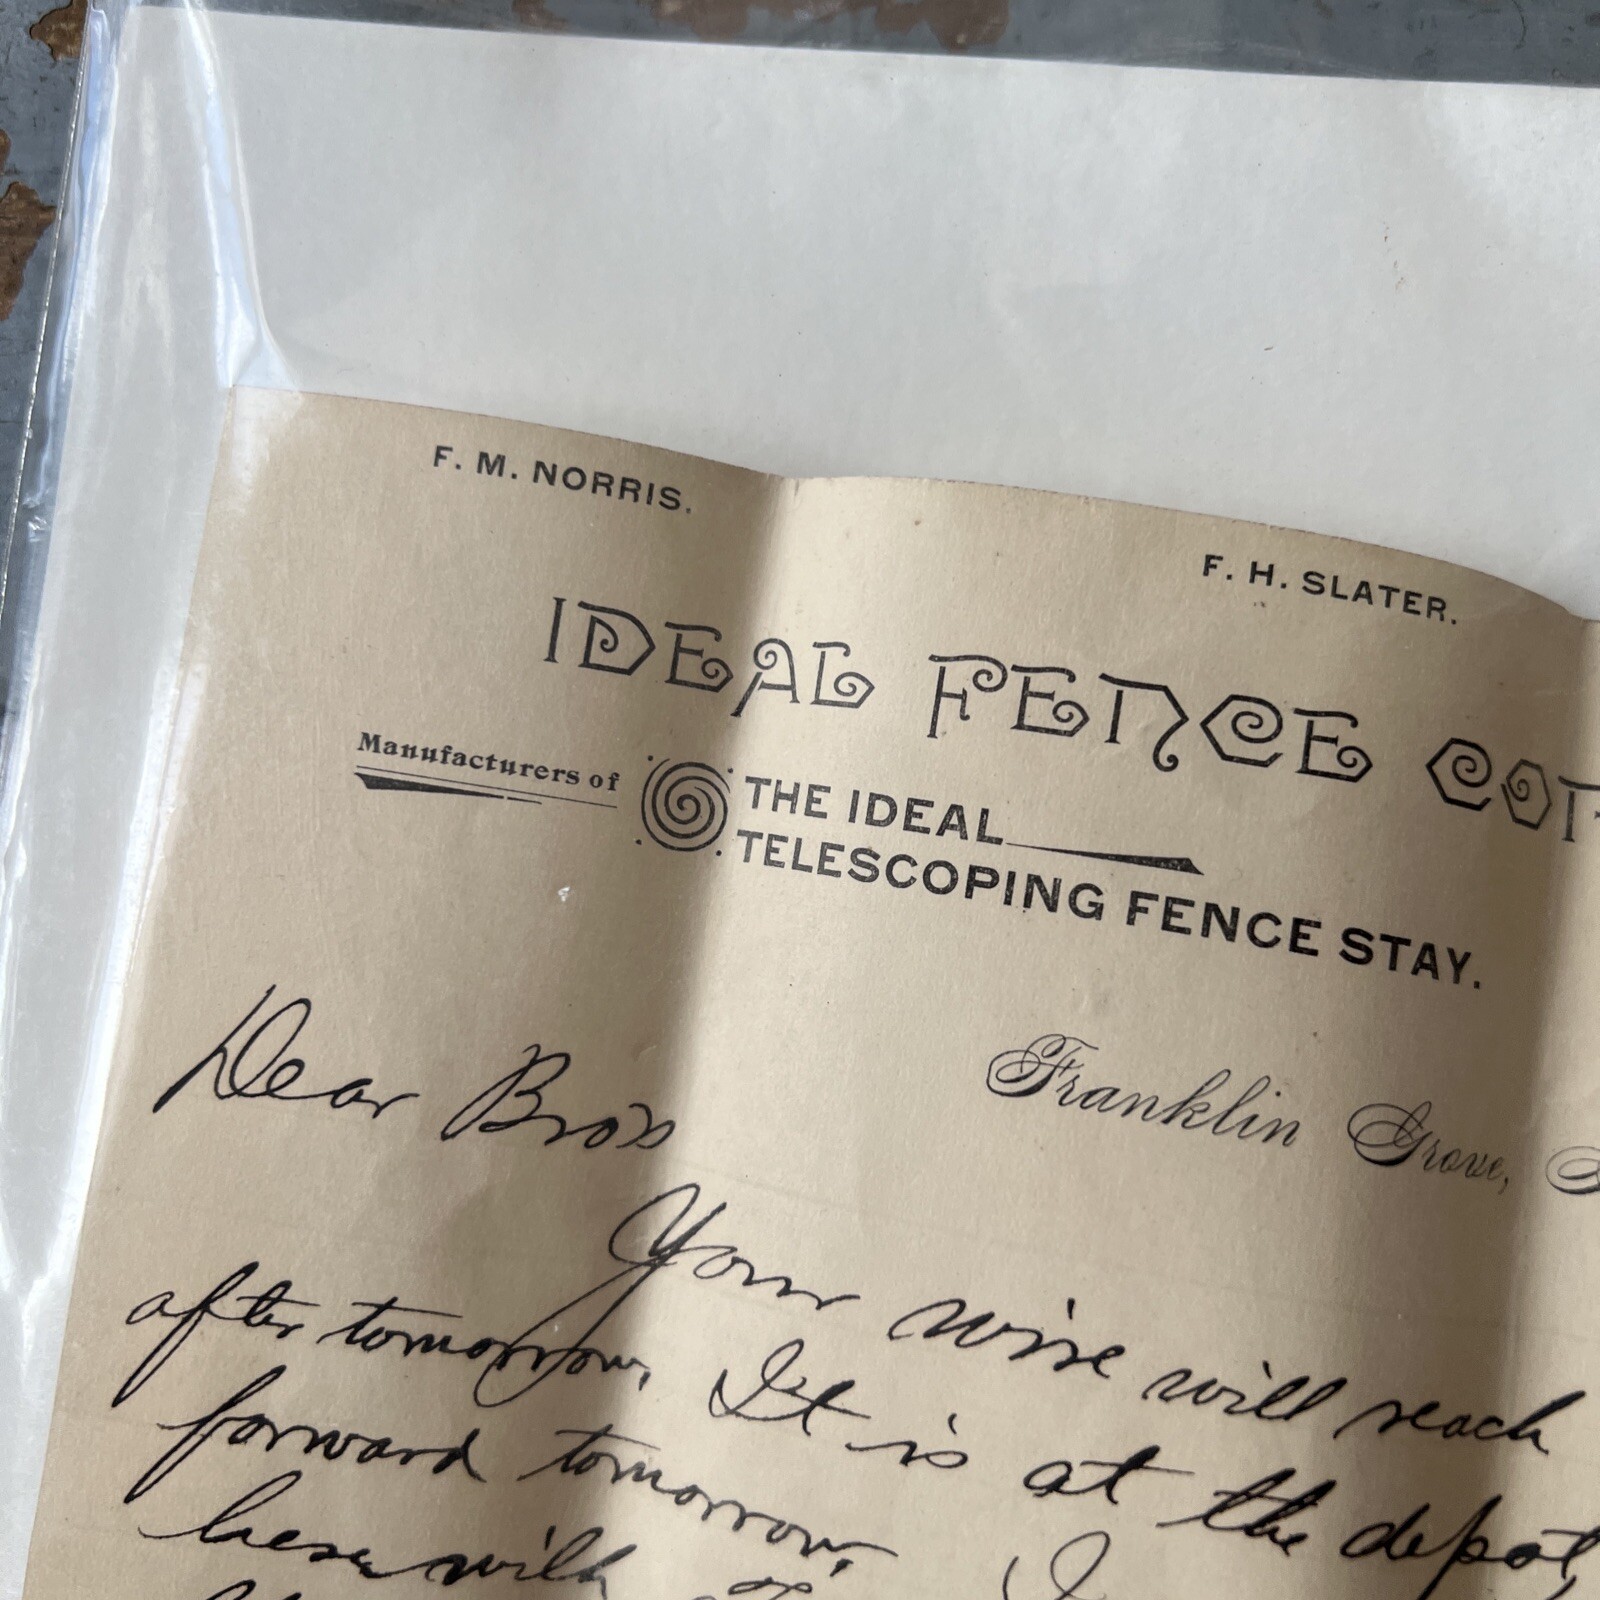 F. M. NORRIS.
F. H. SLATER.
IDEAL FENCE CO
Manufacturers of
THE IDEAL
TELESCOPING FENCE STAY.
Franklin Grove,
Dear Bros
Your wire will reach
after tomorrow, It is at the depot,
forward tomorrow, I
herewith